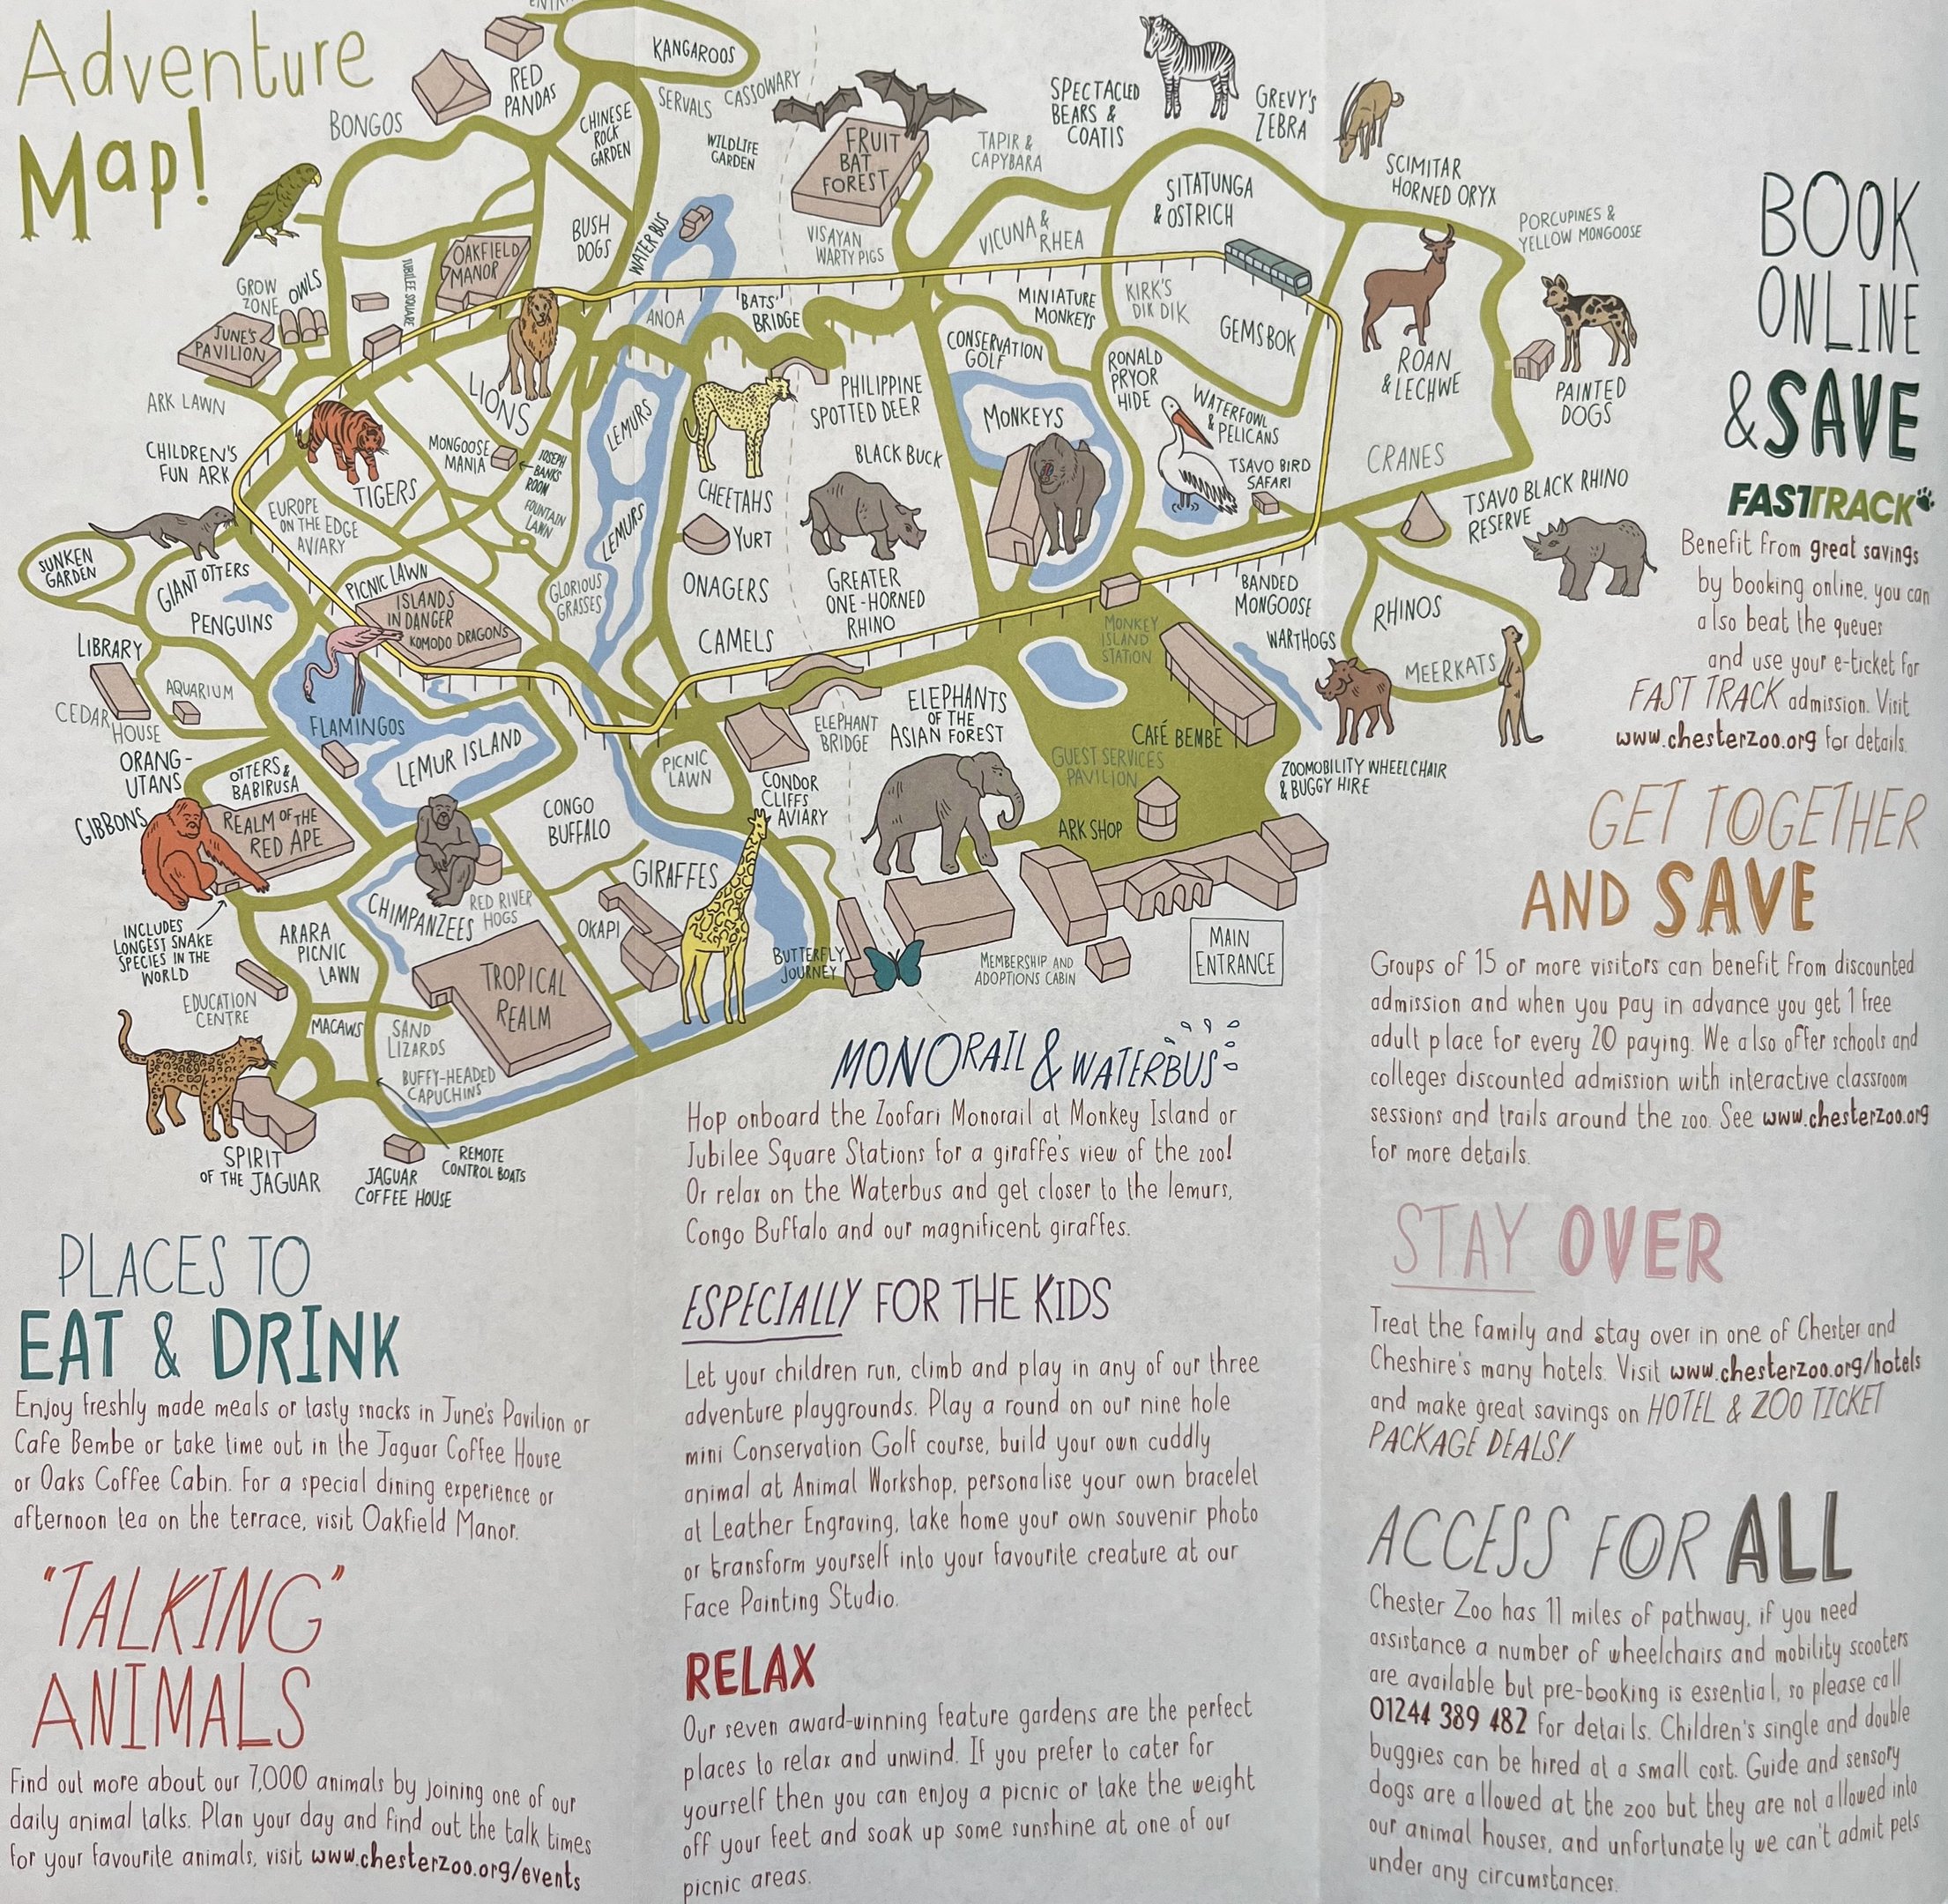 Adventure
Map!
KANGAROOS
RED
PANDAS
BONGOS
CHINESE
ROCK
GARDEN
SERVALS
CASSOWARY
WILDLIFE
GARDEN
FRUIT
BAT
FOREST
TAPIR &
CAPYBARA
SPECTACLED
BEARS &
COATIS
GREVY'S
ZEBRA
SCIMITAR
HORNED ORYX
PORCUPINES &
YELLOW MONGOOSE
SITATUNGA
& OSTRICH
VICUNA &
RHEA
VISAYAN
WARTY PIGS
BUSH
DOGS
WATER BUS
OAKFIELD
MANOR
JUBILEE SQUARE
GROW
ZONE
OWLS
JUNE'S
PAVILION
ARK LAWN
CHILDREN'S
FUN ARK
LIONS
ANOA
BATS'
BRIDGE
MINIATURE
MONKEYS
KIRK'S
DIK DIK
GEMSBOK
ROAN
& LECHWE
PAINTED
DOGS
CONSERVATION
GOLF
RONALD
PRYOR
HIDE
WATERFOWL
& PELICANS
PHILIPPINE
SPOTTED DEER
MONKEYS
LEMURS
MONGOOSE
MANIA
JOSEPH
BANKS
ROOM
TIGERS
BLACK BUCK
TSAVO BIRD
SAFARI
CRANES
TSAVO BLACK RHINO
RESERVE
EUROPE
ON THE EDGE
AVIARY
FOUNTAIN
LAWN
LEMURS
CHEETAHS
YURT
SUNKEN
GARDEN
GIANT OTTERS
PENGUINS
PICNIC LAWN
ISLANDS
IN DANGER
KOMODO DRAGONS
GLORIOUS
GRASSES
ONAGERS
CAMELS
GREATER
ONE-HORNED
RHINO
BANDED
MONGOOSE
RHINOS
MONKEY
ISLAND
STATION
WARTHOGS
MEERKATS
LIBRARY
AQUARIUM
CEDAR
HOUSE
FLAMINGOS
LEMUR ISLAND
PICNIC
LAWN
ELEPHANT
BRIDGE
ELEPHANTS
OF THE
ASIAN FOREST
CAFÉ BEMBE
GUEST SERVICES
PAVILION
ZOOMOBILITY WHEELCHAIR
& BUGGY HIRE
ORANG-
UTANS
OTTERS &
BABIRUSA
CONDOR
CLIFFS
AVIARY
CONGO
BUFFALO
GIBBONS
REALM OF THE
RED APE
ARK SHOP
GIRAFFES
CHIMPANZEES
RED RIVER
HOGS
OKAPI
INCLUDES
LONGEST SNAKE
SPECIES IN THE
WORLD
ARARA
PICNIC
LAWN
TROPICAL
REALM
BUTTERFLY
JOURNEY
MEMBERSHIP AND
ADOPTIONS CABIN
MAIN
ENTRANCE
EDUCATION
CENTRE
MACAWS
SAND
LIZARDS
BUFFY-HEADED
CAPUCHINS
SPIRIT
OF THE JAGUAR
JAGUAR
COFFEE HOUSE
REMOTE
CONTROL BOATS
PLACES TO
EAT & DRINK
Enjoy freshly made meals or tasty snacks in June's Pavilion or
Cafe Bembe or take time out in the Jaguar Coffee House
or Oaks Coffee Cabin. For a special dining experience or
afternoon tea on the terrace, visit Oakfield Manor.
"TALKING"
ANIMALS
Find out more about our 7,000 animals by joining one of our
daily animal talks. Plan your day and find out the talk times
for your favourite animals, visit www.chesterzoo.org/events
MONORAIL & WATERBUS
Hop onboard the Zoofari Monorail at Monkey Island or
Jubilee Square Stations for a giraffe's view of the zoo!
Or relax on the Waterbus and get closer to the lemurs,
Congo Buffalo and our magnificent giraffes.
ESPECIALLY FOR THE KIDS
Let your children run, climb and play in any of our three
adventure playgrounds. Play a round on our nine hole
mini Conservation Golf course, build your own cuddly
animal at Animal Workshop, personalise your own bracelet
at Leather Engraving, take home your own souvenir photo
or transform yourself into your favourite creature at our
Face Painting Studio.
RELAX
Our seven award-winning feature gardens are the perfect
places to relax and unwind. If you prefer to cater for
yourself then you can enjoy a picnic or take the weight
off your feet and soak up some sunshine at one of our
picnic areas.
BOOK
ONLINE
& SAVE
FASTTRACK
Benefit from great savings
by booking online, you can
also beat the queues
and use your e-ticket for
FAST TRACK admission. Visit
www.chesterzoo.org for details.
GET TOGETHER
AND SAVE
Groups of 15 or more visitors can benefit from discounted
admission and when you pay in advance you get 1 free
adult place for every 20 paying. We also offer schools and
colleges discounted admission with interactive classroom
sessions and trails around the zoo. See www.chesterzoo.org
for more details.
STAY OVER
Treat the family and stay over in one of Chester and
Cheshire's many hotels. Visit www.chesterzoo.org/hotels
and make great savings on HOTEL & ZOO TICKET
PACKAGE DEALS!
ACCESS FOR ALL
Chester Zoo has 11 miles of pathway, if you need
assistance a number of wheelchairs and mobility scooters
are available but pre-booking is essential, so please call
01244 389 482 for details. Children's single and double
buggies can be hired at a small cost. Guide and sensory
dogs are allowed at the zoo but they are not allowed into
our animal houses, and unfortunately we can't admit pets
under any circumstances.